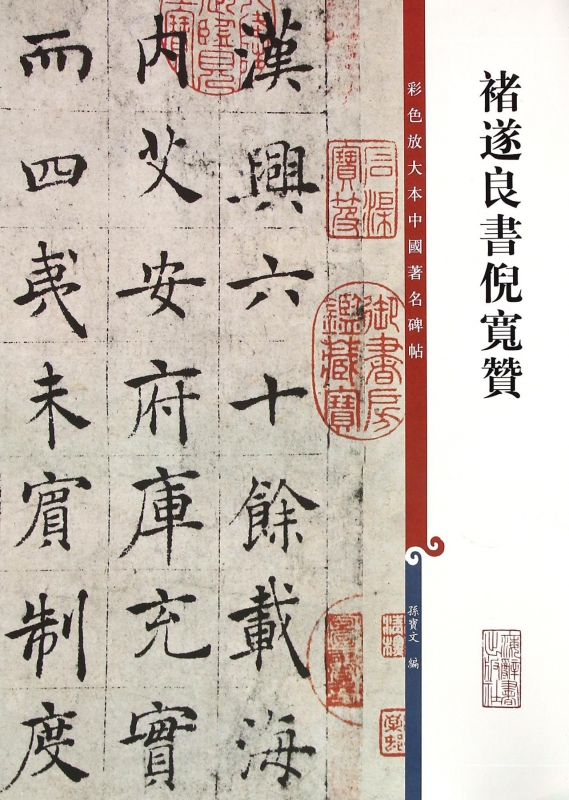 褚遂良書倪寬贊
上海辭書
出版社
彩色放大本中國著名碑帖
孫寶文 編
石渠
寶笈
御書房
鑑藏寶
漢興六十餘載海
内艾安府庫充實
而四夷未賓制度